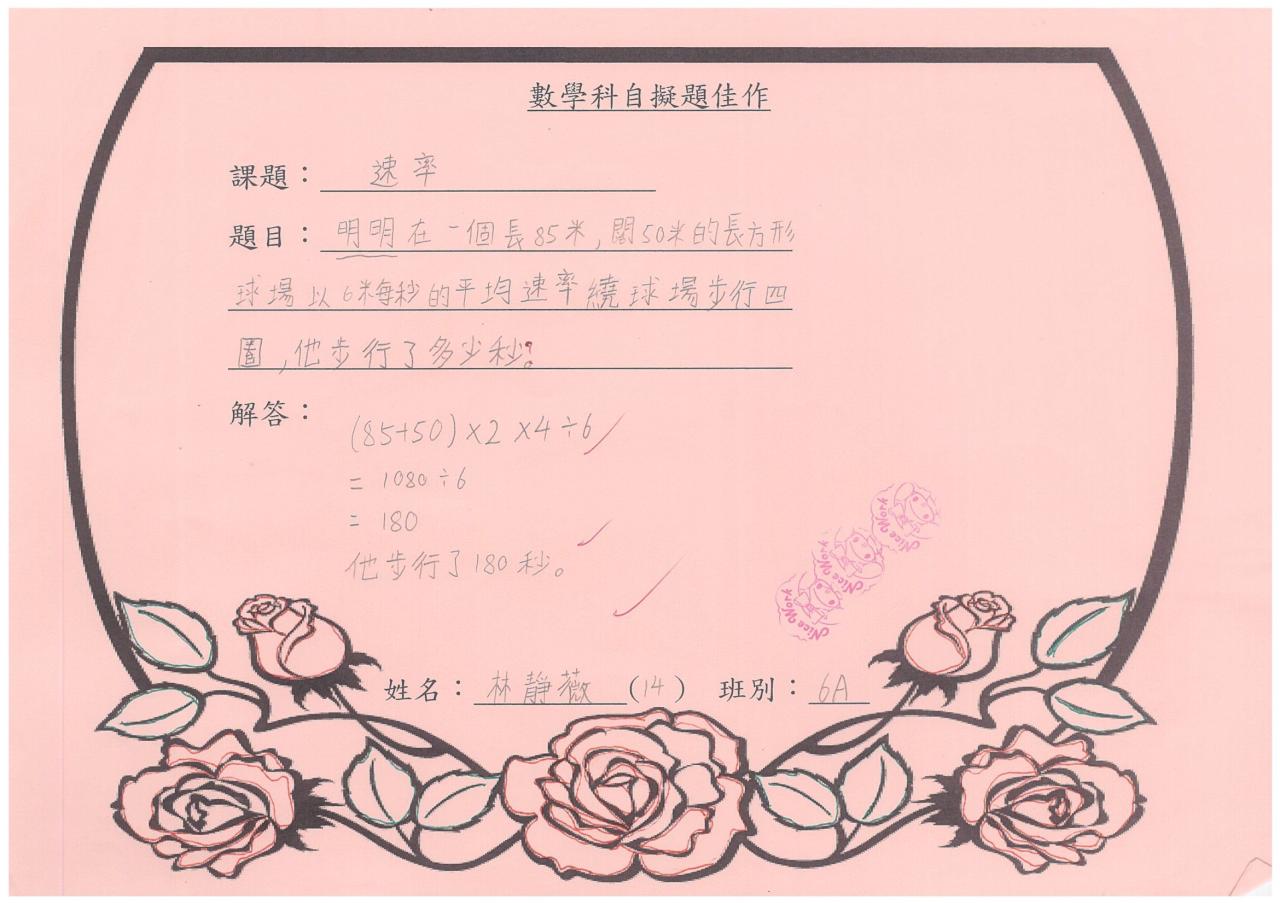 數學科自擬題佳作
課題： 速率
題目： 明明在一個長85米,闊50米的長方形
球場以6米每秒的平均速率繞球場步行四
圍,他步行了多少秒?
解答：
(85+50)×2×4÷6
= 1080÷6
= 180
他步行了180秒。
Nice Work
Nice Work
Nice Work
姓名： 林靜薇 (14) 班別： 6A